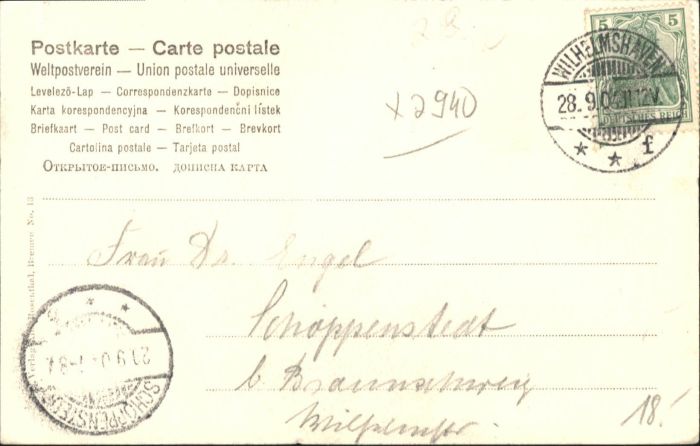 Postkarte — Carte postale
Weltpostverein — Union postale universelle
Levelező-Lap — Correspondenzkarte — Dopisnice
Karta korespondencyjna — Korespondenční lístek
Briefkaart — Post card — Brefkort — Brevkort
Cartolina postale — Tarjeta postal
Открытое-письмо. дописна карта
5 5
DEUTSCHES REICH
WILHELMSHAVEN
28. 9. 11-12V
* * f
x 2940
Frau Dr. Engel
Schöppenstedt
b. Braunschweig
18.
SCHÖPPENSTEDT
Bremen No. 13